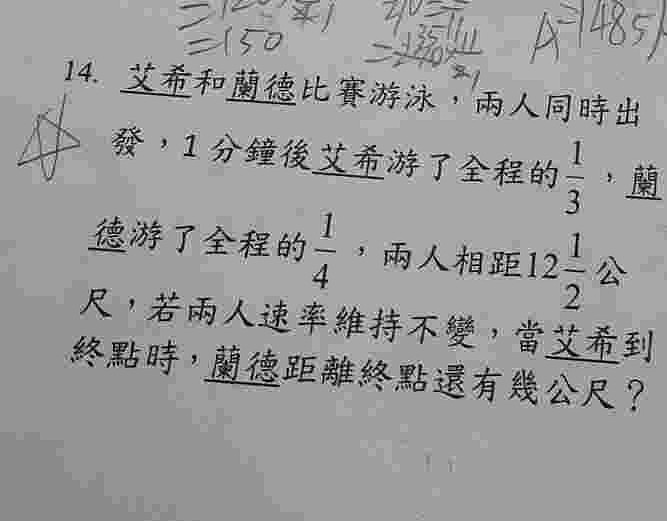 =150
14. 艾希和蘭德比賽游泳，兩人同時出
發，1分鐘後艾希游了全程的1/3，蘭
德游了全程的1/4，兩人相距12 1/2公
尺，若兩人速率維持不變，當艾希到
終點時，蘭德距離終點還有幾公尺？